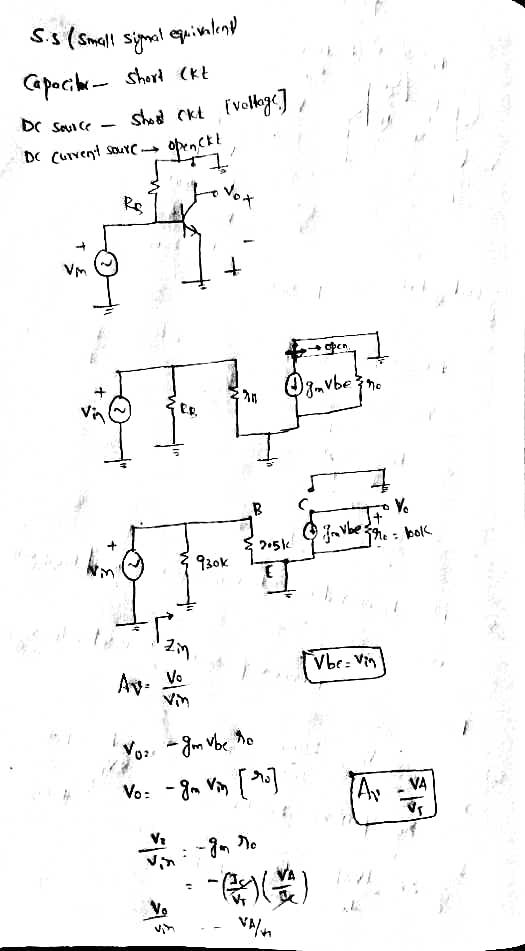 S.S (Small signal equivalent)
Capacitor – Short Ckt
DC Source – Short Ckt [voltage]
DC current sourc → open ckt
RB
Vo +
–
+
Vin
→ open
+
Vin
RB
rπ
gmVbe
ro
B
C
Vo
+
+
Vin
930k
2.51k
gmVbe
ro = 100k
E
Zin
Av = Vo/Vin
Vbe = Vin
Vo = -gm Vbe ro
Vo = -gm Vin [ro]
Av -VA/VT
Vo/Vin = -gm ro
= -(Ic/VT)(VA/Ic)
Vo/Vin -- VA/VT